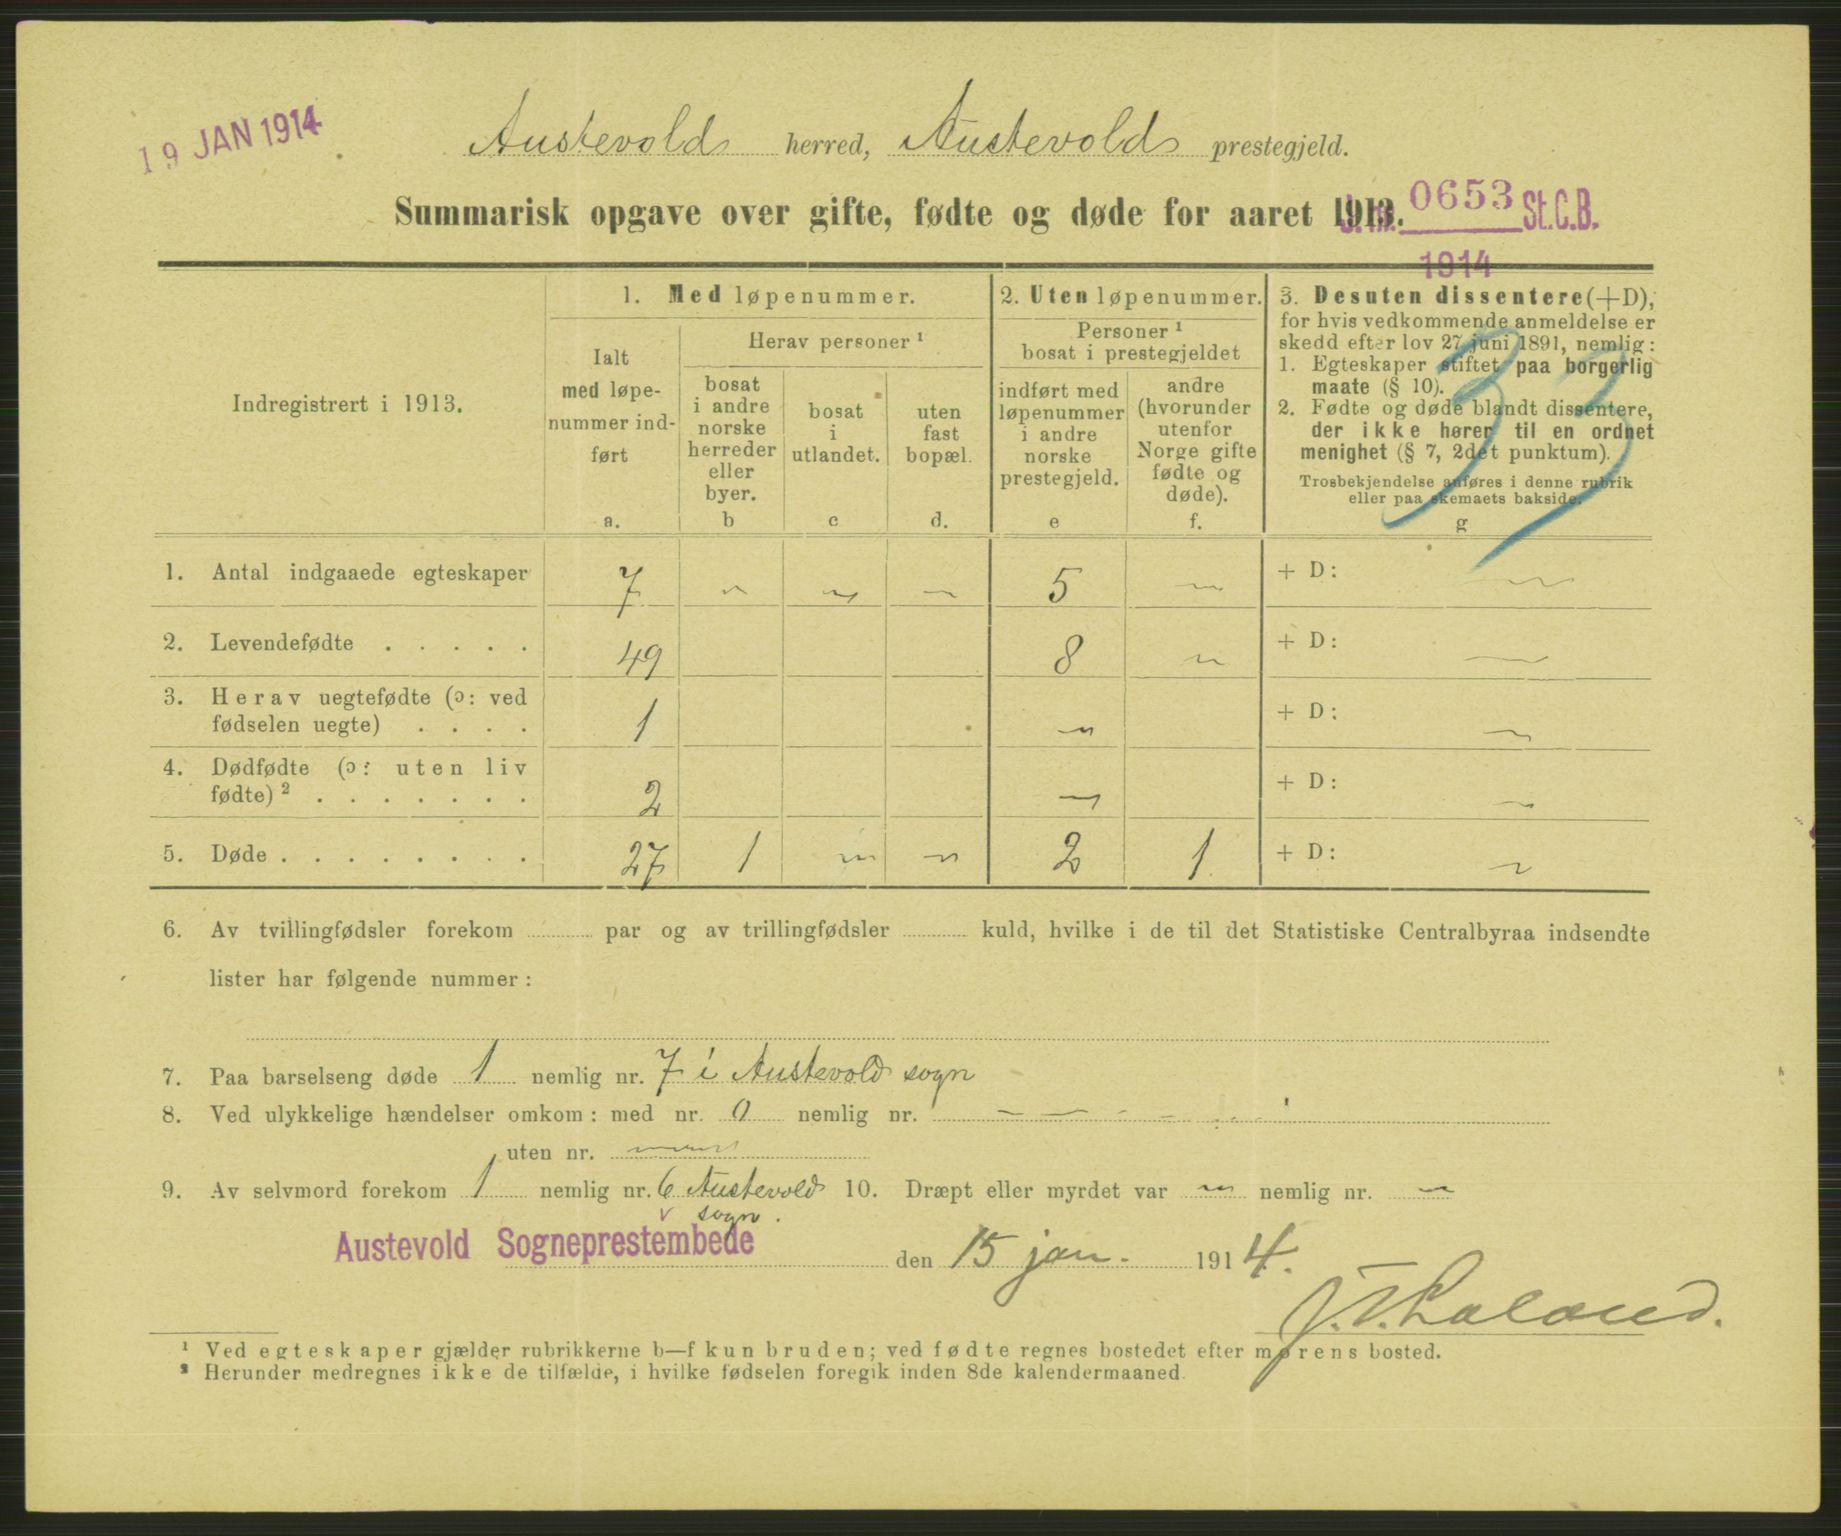 19 JAN 1914
Austevolds herred, Austevolds prestegjeld.
Summarisk opgave over gifte, fødte og døde for aaret 1913.
0653 St.C.B.
1914
Indregistrert i 1913.
1. Med løpenummer.
Ialt med løpe-
nummer ind-
ført
a.
Herav personer ¹
bosat
i andre
norske
herreder
eller
byer.
b
bosat
i
utlandet.
c
uten
fast
bopæl.
d.
2. Uten løpenummer.
Personer ¹
bosat i prestegjeldet
indført med
løpenummer
i andre
norske
prestegjeld.
e
andre
(hvorunder
utenfor
Norge gifte
fødte og
døde).
f.
3. Desuten dissentere (+D),
for hvis vedkommende anmeldelse er
skedd efter lov 27 juni 1891, nemlig:
1. Egteskaper stiftet paa borgerlig
maate (§ 10).
2. Fødte og døde blandt dissentere,
der ikke hører til en ordnet
menighet (§ 7, 2det punktum).
Trosbekjendelse anføres i denne rubrik
eller paa skemaets bakside.
g
33
1. Antal indgaaede egteskaper 7 " " " 5 " + D: "
2. Levendefødte . . . . . 49 8 " + D: —
3. Herav uegtefødte (ɔ: ved
fødselen uegte) . . . . 1 " + D: "
4. Dødfødte (ɔ: uten liv
fødte) ² . . . . . . . 2 — + D: "
5. Døde . . . . . . . . 27 1 " " 2 1 + D: "
6. Av tvillingfødsler forekom par og av trillingfødsler kuld, hvilke i de til det Statistiske Centralbyraa indsendte
lister har følgende nummer:
7. Paa barselseng døde 1 nemlig nr. 7 i Austevold sogn
8. Ved ulykkelige hændelser omkom: med nr. 0 nemlig nr. — — — —
uten nr.
9. Av selvmord forekom 1 nemlig nr. 6 Austevold 10. Dræpt eller myrdet var " nemlig nr. "
sogn.
Austevold Sogneprestembede den 15 jan. 1914.
¹ Ved egteskaper gjælder rubrikkerne b—f kun bruden; ved fødte regnes bostedet efter morens bosted.
² Herunder medregnes ikke de tilfælde, i hvilke fødselen foregik inden 8de kalendermaaned.